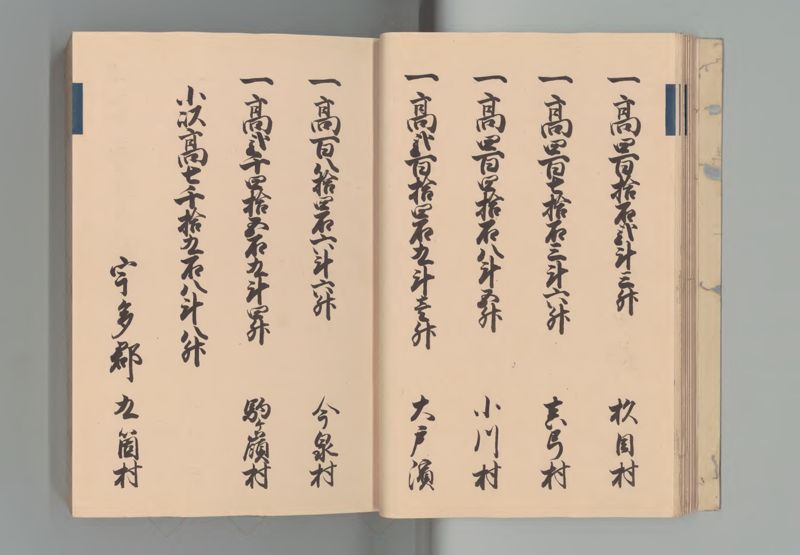 一高四百拾石弐斗三升 杦目村
一高四百七拾石三斗六升 真弓村
一高四百四拾石八斗五升 小川村
一高弐百拾四石九斗壱升 大戸濱
一高百八拾四石六斗六升 今泉村
一高弐千四拾五石九斗四升 駒ヶ嶺村
小以高七千拾九石八斗八升
宇多郡 九箇村